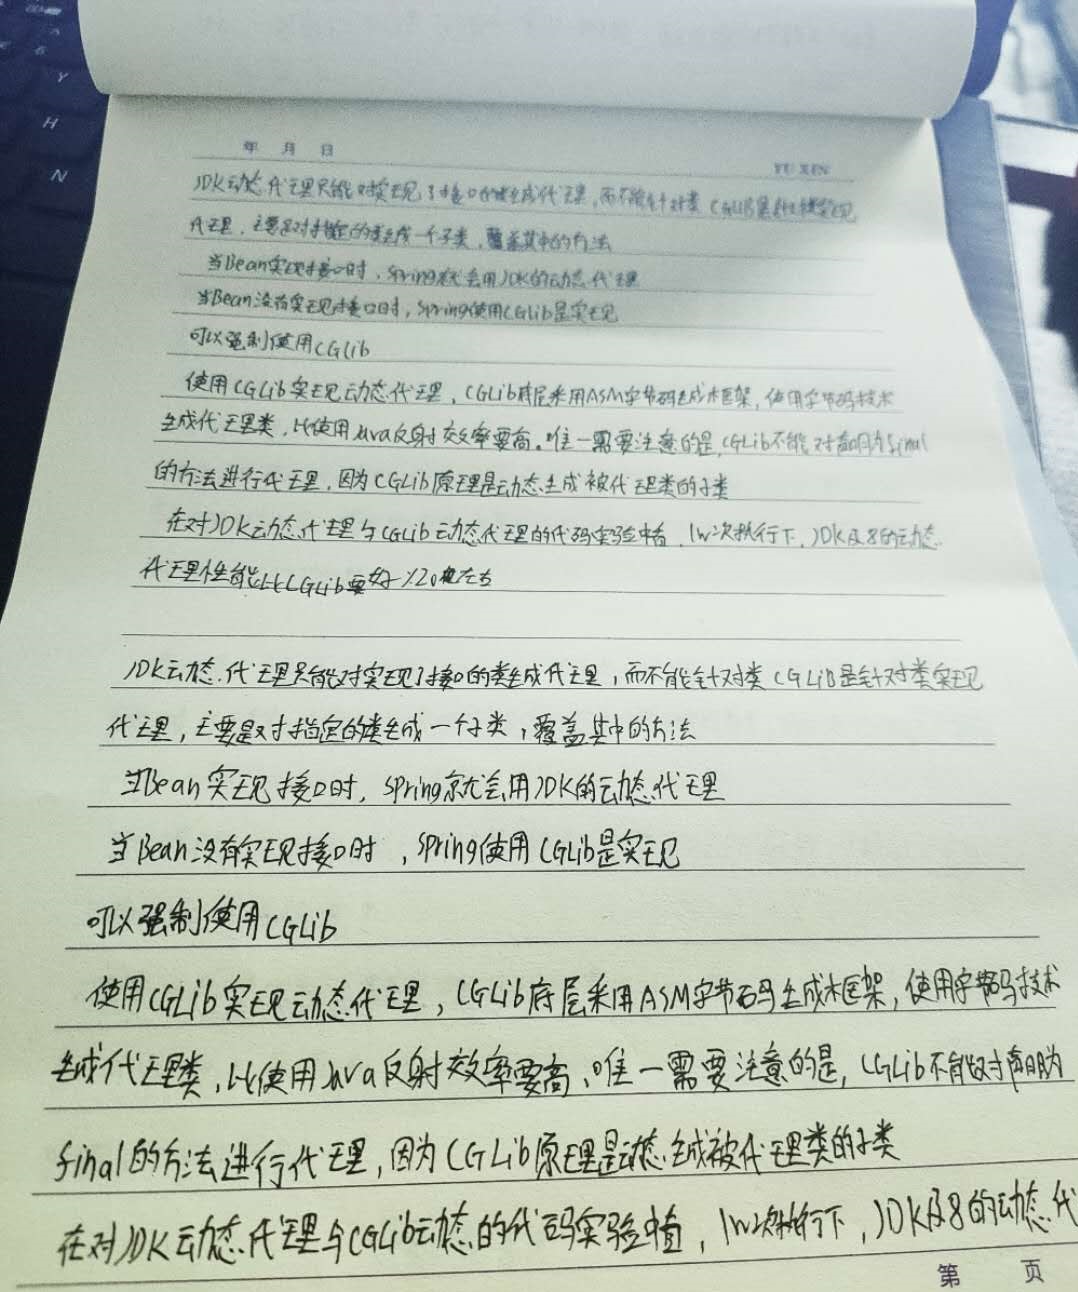 Y
H
N
年 月 日
YU XIN
JDK动态代理只能对实现了接口的类生成代理，而不能针对类 CGLIB是针对类实现
代理，主要是对指定的类生成一个子类，覆盖其中的方法
当Bean实现接口时，Spring就会用JDK的动态代理
当Bean没有实现接口时，Spring使用CGLib是实现
可以强制使用CGlib
使用CGLib实现动态代理，CGLib底层采用ASM字节码生成术框架，使用字节码技术
生成代理类，比使用Java反射效率要高。唯一需要注意的是，CGLib不能对声明为final
的方法进行代理，因为CGLib原理是动态生成被代理类的子类
在对JDK动态代理与CGLib动态代理的代码实验中看，1w次执行下，JDK及8的动态
代理性能比CGLib要好%20左右
JDK动态代理只能对实现了接口的类生成代理，而不能针对类 CGLIB是针对类实现
代理，主要是对指定的类生成一个子类，覆盖其中的方法
当Bean实现接口时，Spring就会用JDK的动态代理
当Bean没有实现接口时，Spring使用CGLib是实现
可以强制使用CGLib
使用CGLib实现动态代理，CGLib底层采用ASM字节码生成术框架，使用字节码技术
生成代理类，比使用Java反射效率要高，唯一需要注意的是，CGLib不能对声明为
final的方法进行代理，因为CGLib原理是动态生成被代理类的子类
在对JDK动态代理与CGLib动态的代码实验中看，1w次执行下，JDK及8的动态代
第 页